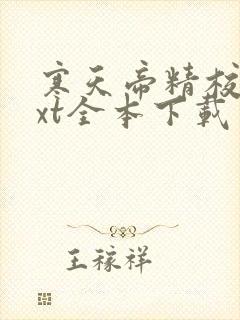 寒天帝精校
xt全本下载
王稼祥